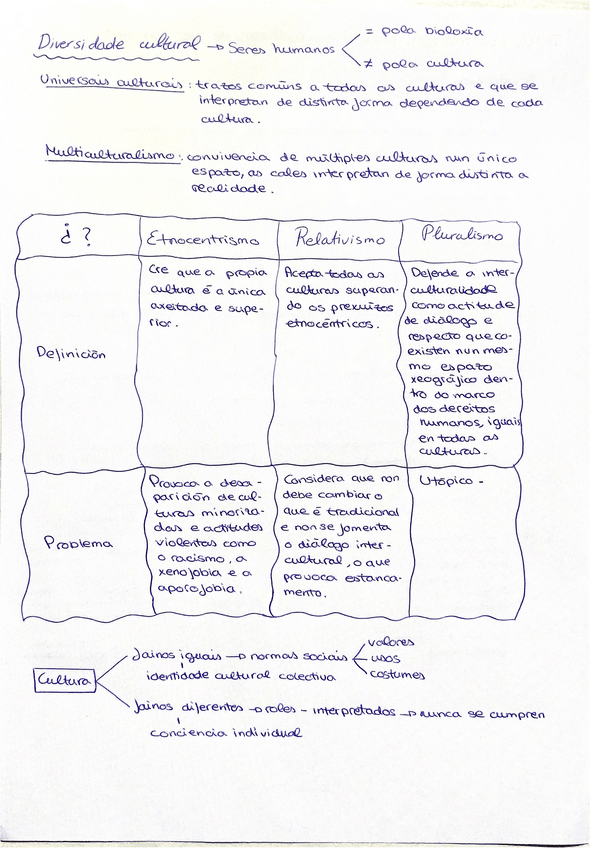 Diversidade cultural → Seres humanos
= pola bioloxía
≠ pola cultura
Universais culturais: trazos comúns a todas as culturas e que se
interpretan de distinta forma dependendo de cada
cultura.
Multiculturalismo: convivencia de múltiples culturas nun único
espazo, as cales interpretan de forma distinta a
realidade.
¿?
Etnocentrismo
Relativismo
Pluralismo
Definición
Cre que a propia
cultura é a única
axeitada e supe-
rior.
Acepta todas as
culturas superan-
do os prexuízos
etnocéntricos.
Defende a inter-
culturalidade
como actitude
de diálogo e
respecto que co-
existen nun mes-
mo espazo
xeográfico den-
tro do marco
dos dereitos
humanos, iguais
en todas as
culturas.
Problema
Provoca a desa-
parición de cul-
turas minorita-
das e actitudes
violentas como
o racismo, a
xenofobia e a
aporofobia.
Considera que non
debe cambiar o
que é tradicional
e non se fomenta
o diálogo inter-
cultural, o que
provoca estanca-
mento.
Utópico -
Cultura
Fainos iguais → normas sociais
valores
usos
costumes
identidade cultural colectiva
Fainos diferentes → roles - interpretados → nunca se cumpren
conciencia individual